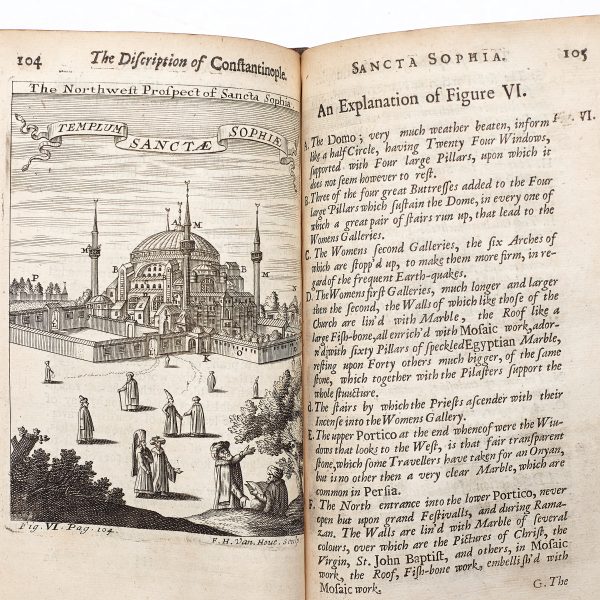 104 The Discription of Constantinople.
The Northwest Prospect of Sancta Sophia
TEMPLUM SANCTÆ SOPHIÆ
A
M
M
H
B
B
M
P
N
K
O
Fig. VI. Pag. 104.
F. H. Van. Hove. Sculp
SANCTA SOPHIA. 105
An Explanation of Figure VI.
A. The Domo; very much weather beaten, inform Fig. VI.
like a half Circle, having Twenty Four Windows,
supported with Four large Pillars, upon which it
does not seem however to rest.
B. Three of the four great Buttresses added to the Four
large Pillars which sustain the Dome, in every one of
which a great pair of stairs run up, that lead to the
Womens Galleries.
C. The Womens second Galleries, the six Arches of
which are stopp'd up, to make them more firm, in re-
gard of the frequent Earth-quakes.
D. The Womens first Galleries, much longer and larger
then the second, the Walls of which like those of the
Church are lin'd with Marble, the Roof like a
large Fish-bone, all enrich'd with Mosaic work, ador-
n'd with sixty Pillars of speckled Egyptian Marble,
resting upon Forty others much bigger, of the same
stone, which together with the Pilasters support the
whole stuucture.
d. The stairs by which the Priests ascender with their
Incense into the Womens Gallery.
E. The upper Portico at the end whence of were the Win-
dows that looks to the West, is that fair transparent
stone, which some Travellers have taken for an Onyan,
but is no other then a very clear Marble, which are
common in Persia.
F. The North entrance into the lower Portico, never
open but upon grand Festivalls, and during Rama-
zan. The Walls are lin'd with Marble of several
colours, over which are the Pictures of Christ, the
Virgin, St. John Baptist, and others, in Mosaic
work, the Roof, Fish-bone work, embellish'd with
Mosaic work.
G. The